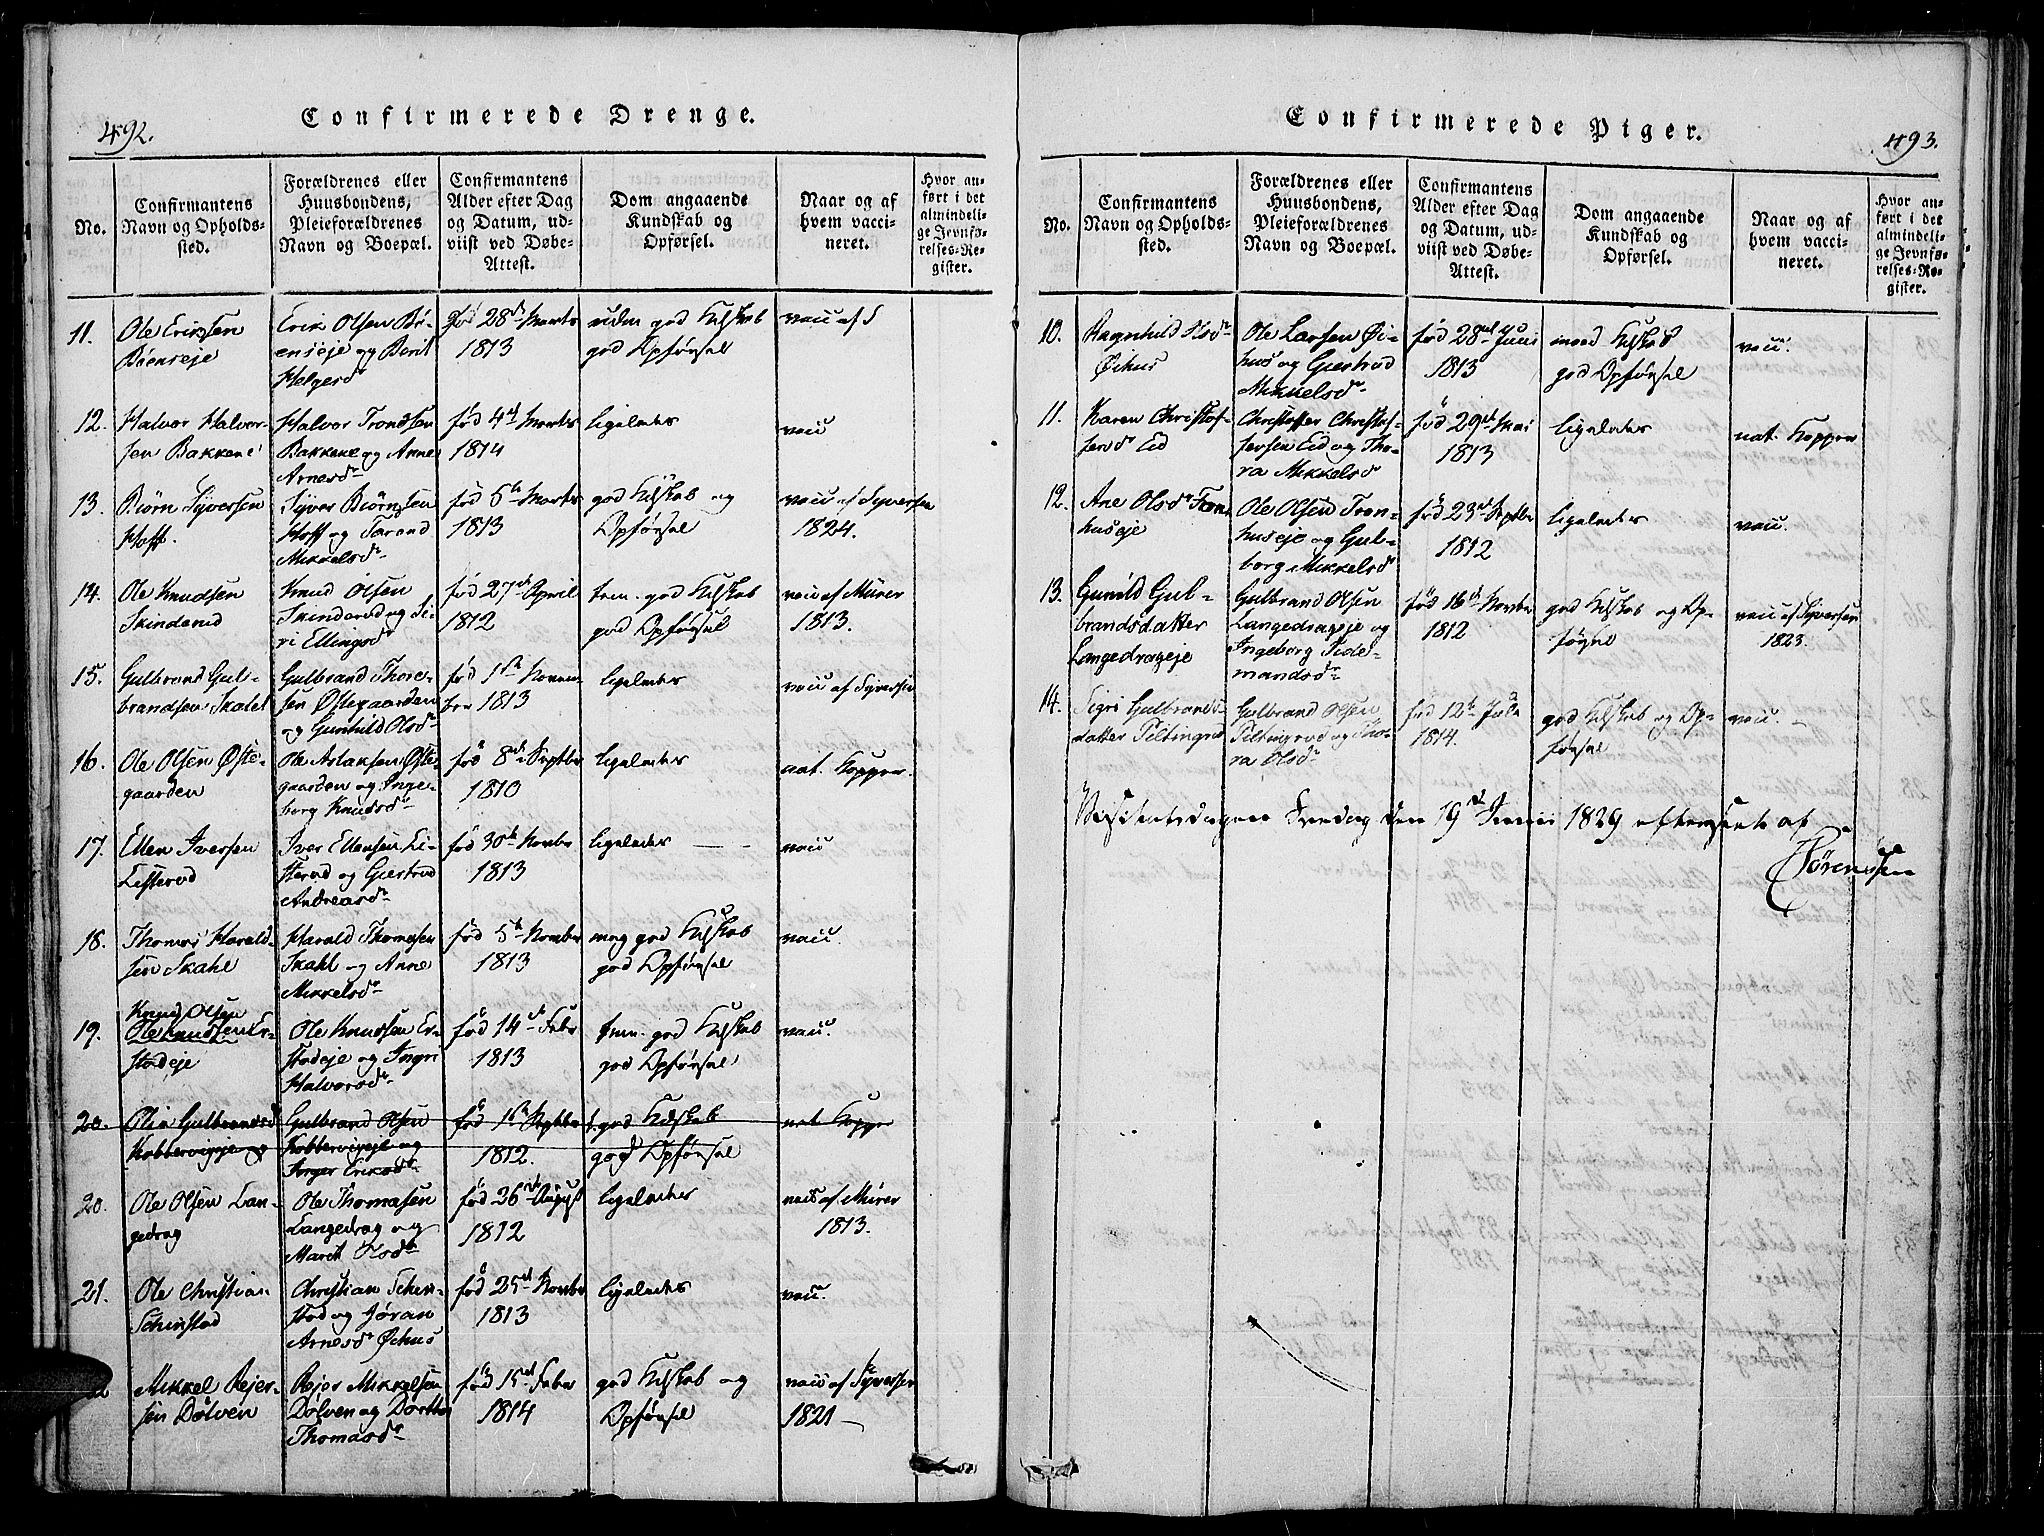 492.
Confirmerede Drenge.
No.
Confirmantens
Navn og Opholds-
sted.
Forældrenes eller
Huusbondens,
Pleieforældrenes
Navn og Boepæl.
Confirmantens
Alder efter Dag
og Datum, ud-
viist ved Døbe-
Attest.
Dom angaaende
Kundskab og
Opførsel.
Naar og af
hvem vacci-
neret.
Hvor an-
ført i det
almindeli-
ge Jevnfø-
relses-Re-
gister.
11.
Ole Eriksen
Böenseje
Erik Olsen Bö-
enseje og Berit
Helgersdr
född 28de Marts
1813
god Kdskab
god Opförsel
vacc af S
12.
Halvor Halvor-
sen Bakkene
Halvor Trondsen
Bakkene og Anne
Arnesdr
föd 4de Marts
1814
ligeledes
vacc
13.
Biörn Syversen
Hoff.
Syver Biörnsen
Hoff og Tarand
Mikkelsdr
föd 5te Marts
1813
god Kdskab og
Opförsel
vacc af Syversen
1824.
14.
Ole Knudsen
Skinderud
Knud Olsen
Skinderud og Si-
ri Ellingsdr
föd 27de April
1812
tem. god Kdskab
god Opförsel
vacc af Mürer
1813.
15.
Gulbrand Gul-
brandsen Skatel
Gulbrand Thore-
sen Östegaarden
og Gunhild Olsdr
föd 1ste Novem-
ber 1813
ligeledes
vacc af Syversen
16.
Ole Olsen Öste-
gaarden
Ole Aslaksen Öste-
gaarden og Inge-
borg Knudsdr
föd 8de Septbr
1810
ligeledes
nat. Kopper.
17.
Ellen Iversen
Listerud
Iver Ellensen Li-
sterud og Giertrud
Andreasdr
föd 30te Novbr
1813
ligeledes
vacc
18.
Thomas Harald-
sen Skahl
Harald Thomasen
Skahl og Anne
Mikkelsdr
föd 5te Novber
1813
meg god Kdskab
god Opförsel
vacc.
19.
Knud Olsen
Ole Knudsen Er-
stadeje
Ole Knudsen Er-
stadeje og Ingri
Halvorsdr
föd 14de Febr
1813
tem. god Kdskab
god Opförsel
vacc.
20.
Olia Gulbrandsd
Kobbervigeje
Gulbrand Olsen
Kobbervigeje og
Inger Eriksdr
föd 1ste Septbr
1812.
t. god Kdskab
god Opförsel
nat Kopper
20.
Ole Olsen Lan-
gedrag
Ole Thomasen
Langedrag og
Marit Olsdr
föd 26de August
1812
ligeledes
vacc af Mürer
1813.
21.
Ole Christian
Schinstad
Christian Schin-
stad og Jöran
Arnesdr Öehus
föd 25de Novbr
1813
ligeledes
vacc.
Mikkel Rejer-
sen Dölven
Rejer Mikkelsen
Dölven og Dorthe
Thomasdr
föd 15de Febr
1814
god Kdskab og
Opförsel
vacc af Syversen
1821
Confirmerede Piger.
493.
No.
Confirmantens
Navn og Opholds-
sted.
Forældrenes eller
Huusbondens,
Pleieforældrenes
Navn og Boepæl.
Confirmantens
Alder efter Dag
og Datum, ud-
viist ved Døbe-
Attest.
Dom angaaende
Kundskab og
Opførsel.
Naar og af
hvem vacci-
neret.
Hvor an-
ført i det
almindeli-
ge Jevnfø-
relses-Re-
gister.
10.
Ragnhild Olsdr
Öihus
Ole Larsen Öi-
hus og Giertrud
Mikkelsdr
föd 28de Juni
1813
Kdskab
god Opförsel
vacc.
11.
Karen Christof-
fersdr Eid
Christoffer Christof-
fersen Eid og Tho-
ra Mikkelsdr
föd 29de Mai
1813
ligeledes
nat. Kopper
12.
Ane Olsdr Tron-
huseje
Ole Olsen Tron-
huseje og Gul-
borg Mikkelsdr
föd 23de Septbr
1812
ligeledes
vacc.
13.
Gunild Gul-
brandsdatter
Langedrageje
Gulbrand Olsen
Langedrageje og
Ingeborg Tide-
mandsdr
föd 16de Novbr
1812
god Kdskab og Op-
försel
vacc af Syversen
1823.
14.
Sigri Gulbrands-
datter Tiltingrud
Gulbrand Olsen
Tiltingrud og Tho-
ra Olsdr
föd 12te Juli
1814.
god Kdskab og Op-
försel
vacc.
Visitatsdagen Fredag den 19de Junii 1829 efterseete af
Sörenssen